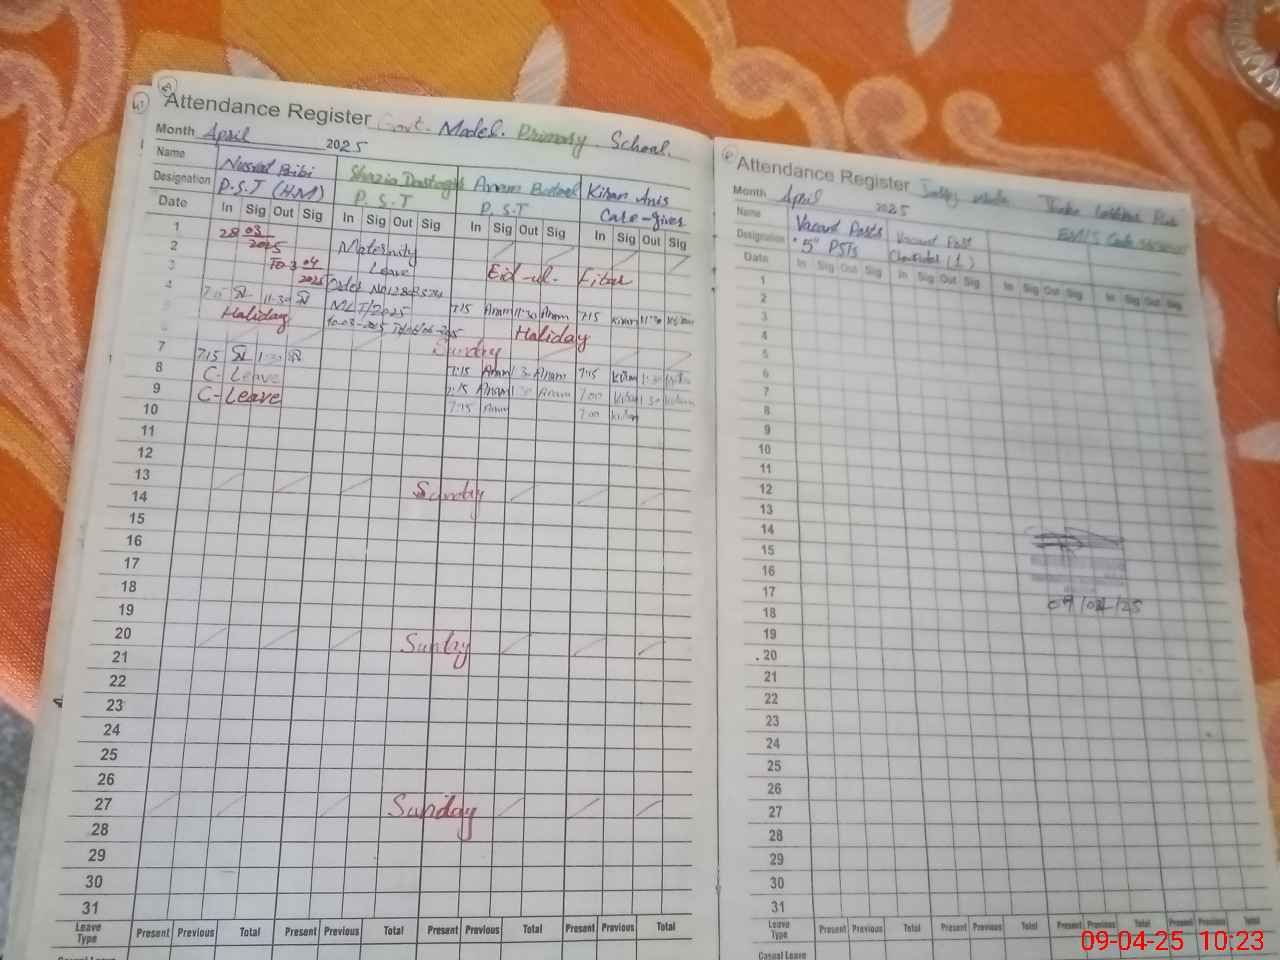 Attendance Register Govt. Model. Primary School.
Month April 2025
Name Nusrat Bibi Shazia Dastagir Anam Kiran Anis
Designation P.S.T (HM) P.S.T P.S.T Care-giver
Date In Sig Out Sig In Sig Out Sig In Sig Out Sig In Sig Out Sig
1 28 03 2025 Maternity
2 To 3 04 2025 Leave
3 Eid-ul-Fitar
4 7:15 11:30 7:15 Anam 11:30 Anam 7:15 Kiran 11:30 Kiran
Haliday Haliday
Sunday
7 7:15 1:30 7:15 Anam 1:30 Anam 7:15 Kiran 1:30 Kiran
8 C-Leave 7:15 Anam 1:30 Anam 7:00 Kiran 1:30 Kiran
9 C-Leave 7:15 Anam 7:00 Kiran
10
11
12
13 Sunday
14
15
16
17
18
19
20 Sunday
21
22
23
24
25
26
27 Sunday
28
29
30
31
Leave Type Present Previous Total Present Previous Total Present Previous Total Present Previous Total
Casual Leave
Attendance Register
Month April 2025
Name Vacant Posts Vacant Post
Designation "5" PSTs (1)
EMIS Code
Date In Sig Out Sig In Sig Out Sig In Sig Out Sig In Sig Out Sig
1
2
3
4
5
6
7
8
9
10
11
12
13
14
15
16
17
18
19
20
21
22
23
24
25
26
27
28
29
30
31
09/04/25
Leave Type Present Previous Total Present Previous Total Present Previous Total Present Previous Total
Casual Leave
09-04-25 10:23